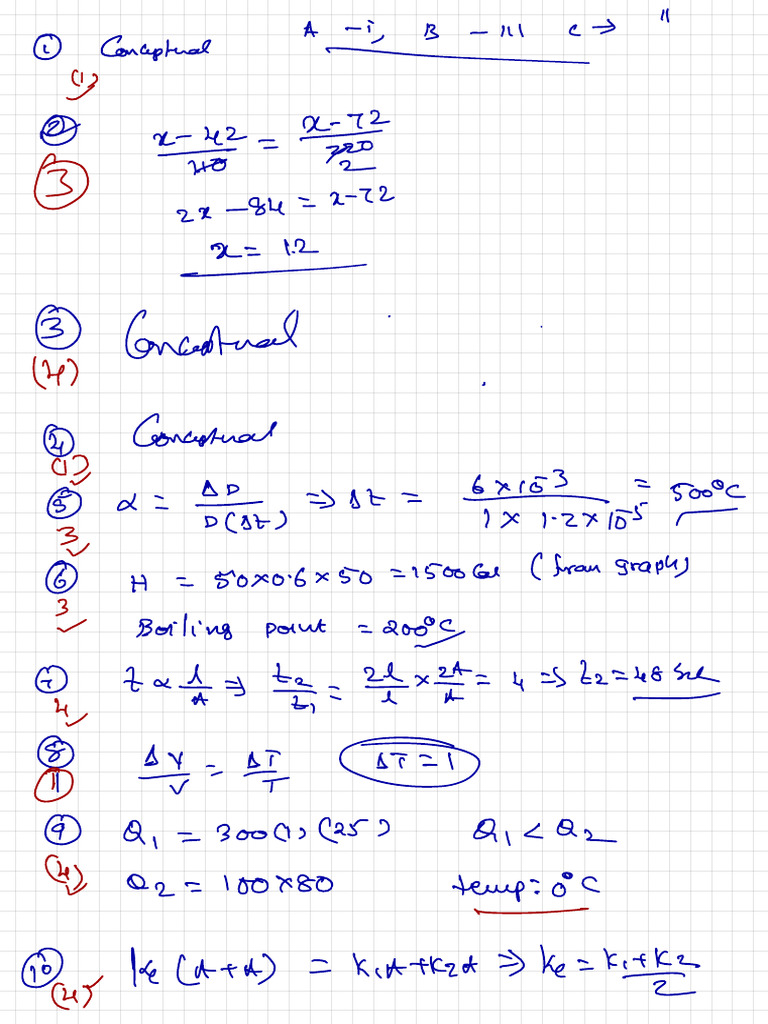 ① Conceptual A – i, B – III C → II
(1)
② x – 42 / 110 = x – 72 / 220 2
3
2x – 84 = x – 72
x = 12
③ Conceptual
(4)
④ Conceptual
(1)
⑤ α = ΔD / D(Δt) ⇒ Δt = 6 × 10⁻³ / 1 × 1.2 × 10⁻⁵ = 500°C
3
⑥ H = 50×0.6×50 = 1500 Cal (from graph)
3
Boiling point = 200°C
⑦ t ∝ l/A ⇒ t₂/t₁ = 2l/l × 2A/A = 4 ⇒ t₂ = 48 Sec
4
⑧ ΔV/V = ΔT/T ΔT = 1
1
⑨ Q₁ = 300(1)(25) Q₁ < Q₂
(4)
Q₂ = 100×80 temp: 0°C
⑩ Ke (A+A) = K₁A+K₂A ⇒ Ke = K₁+K₂ / 2
(4)